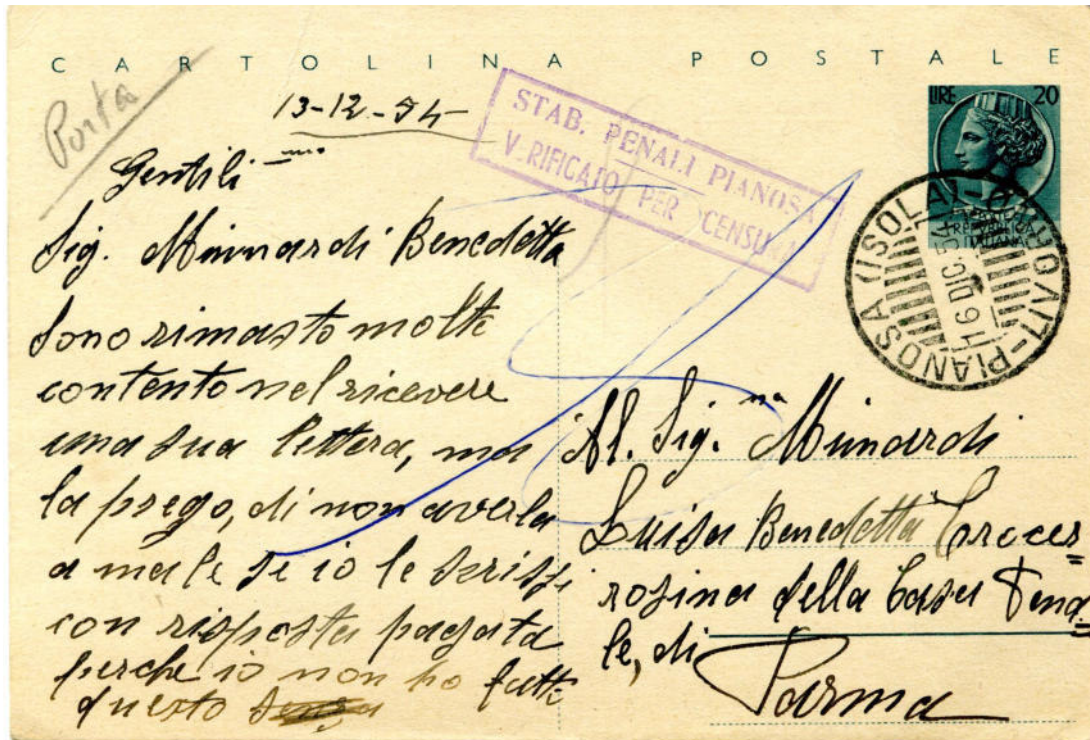 CARTOLINA POSTALE
Porta
13-12-54
STAB. PENALI PIANOSA
V RIFICATO PER CENSURA
LIRE 20
REPVBBLICA
ITALIANA
PIANOSA (ISOLA) - (LIVORNO)
16 DIC. 54
Gentili mo
Sig. Minardi Benedetta
Sono rimasto molto
contento nel ricevere
una sua lettera, ma
la prego, di non averla
a male se io le scrissi
con risposta pagata
perche io non ho fatto
questo
Al. Sig.na Minardi
Luisa Benedetta Croces=
rosina della Casa Pena=
le, di
Parma